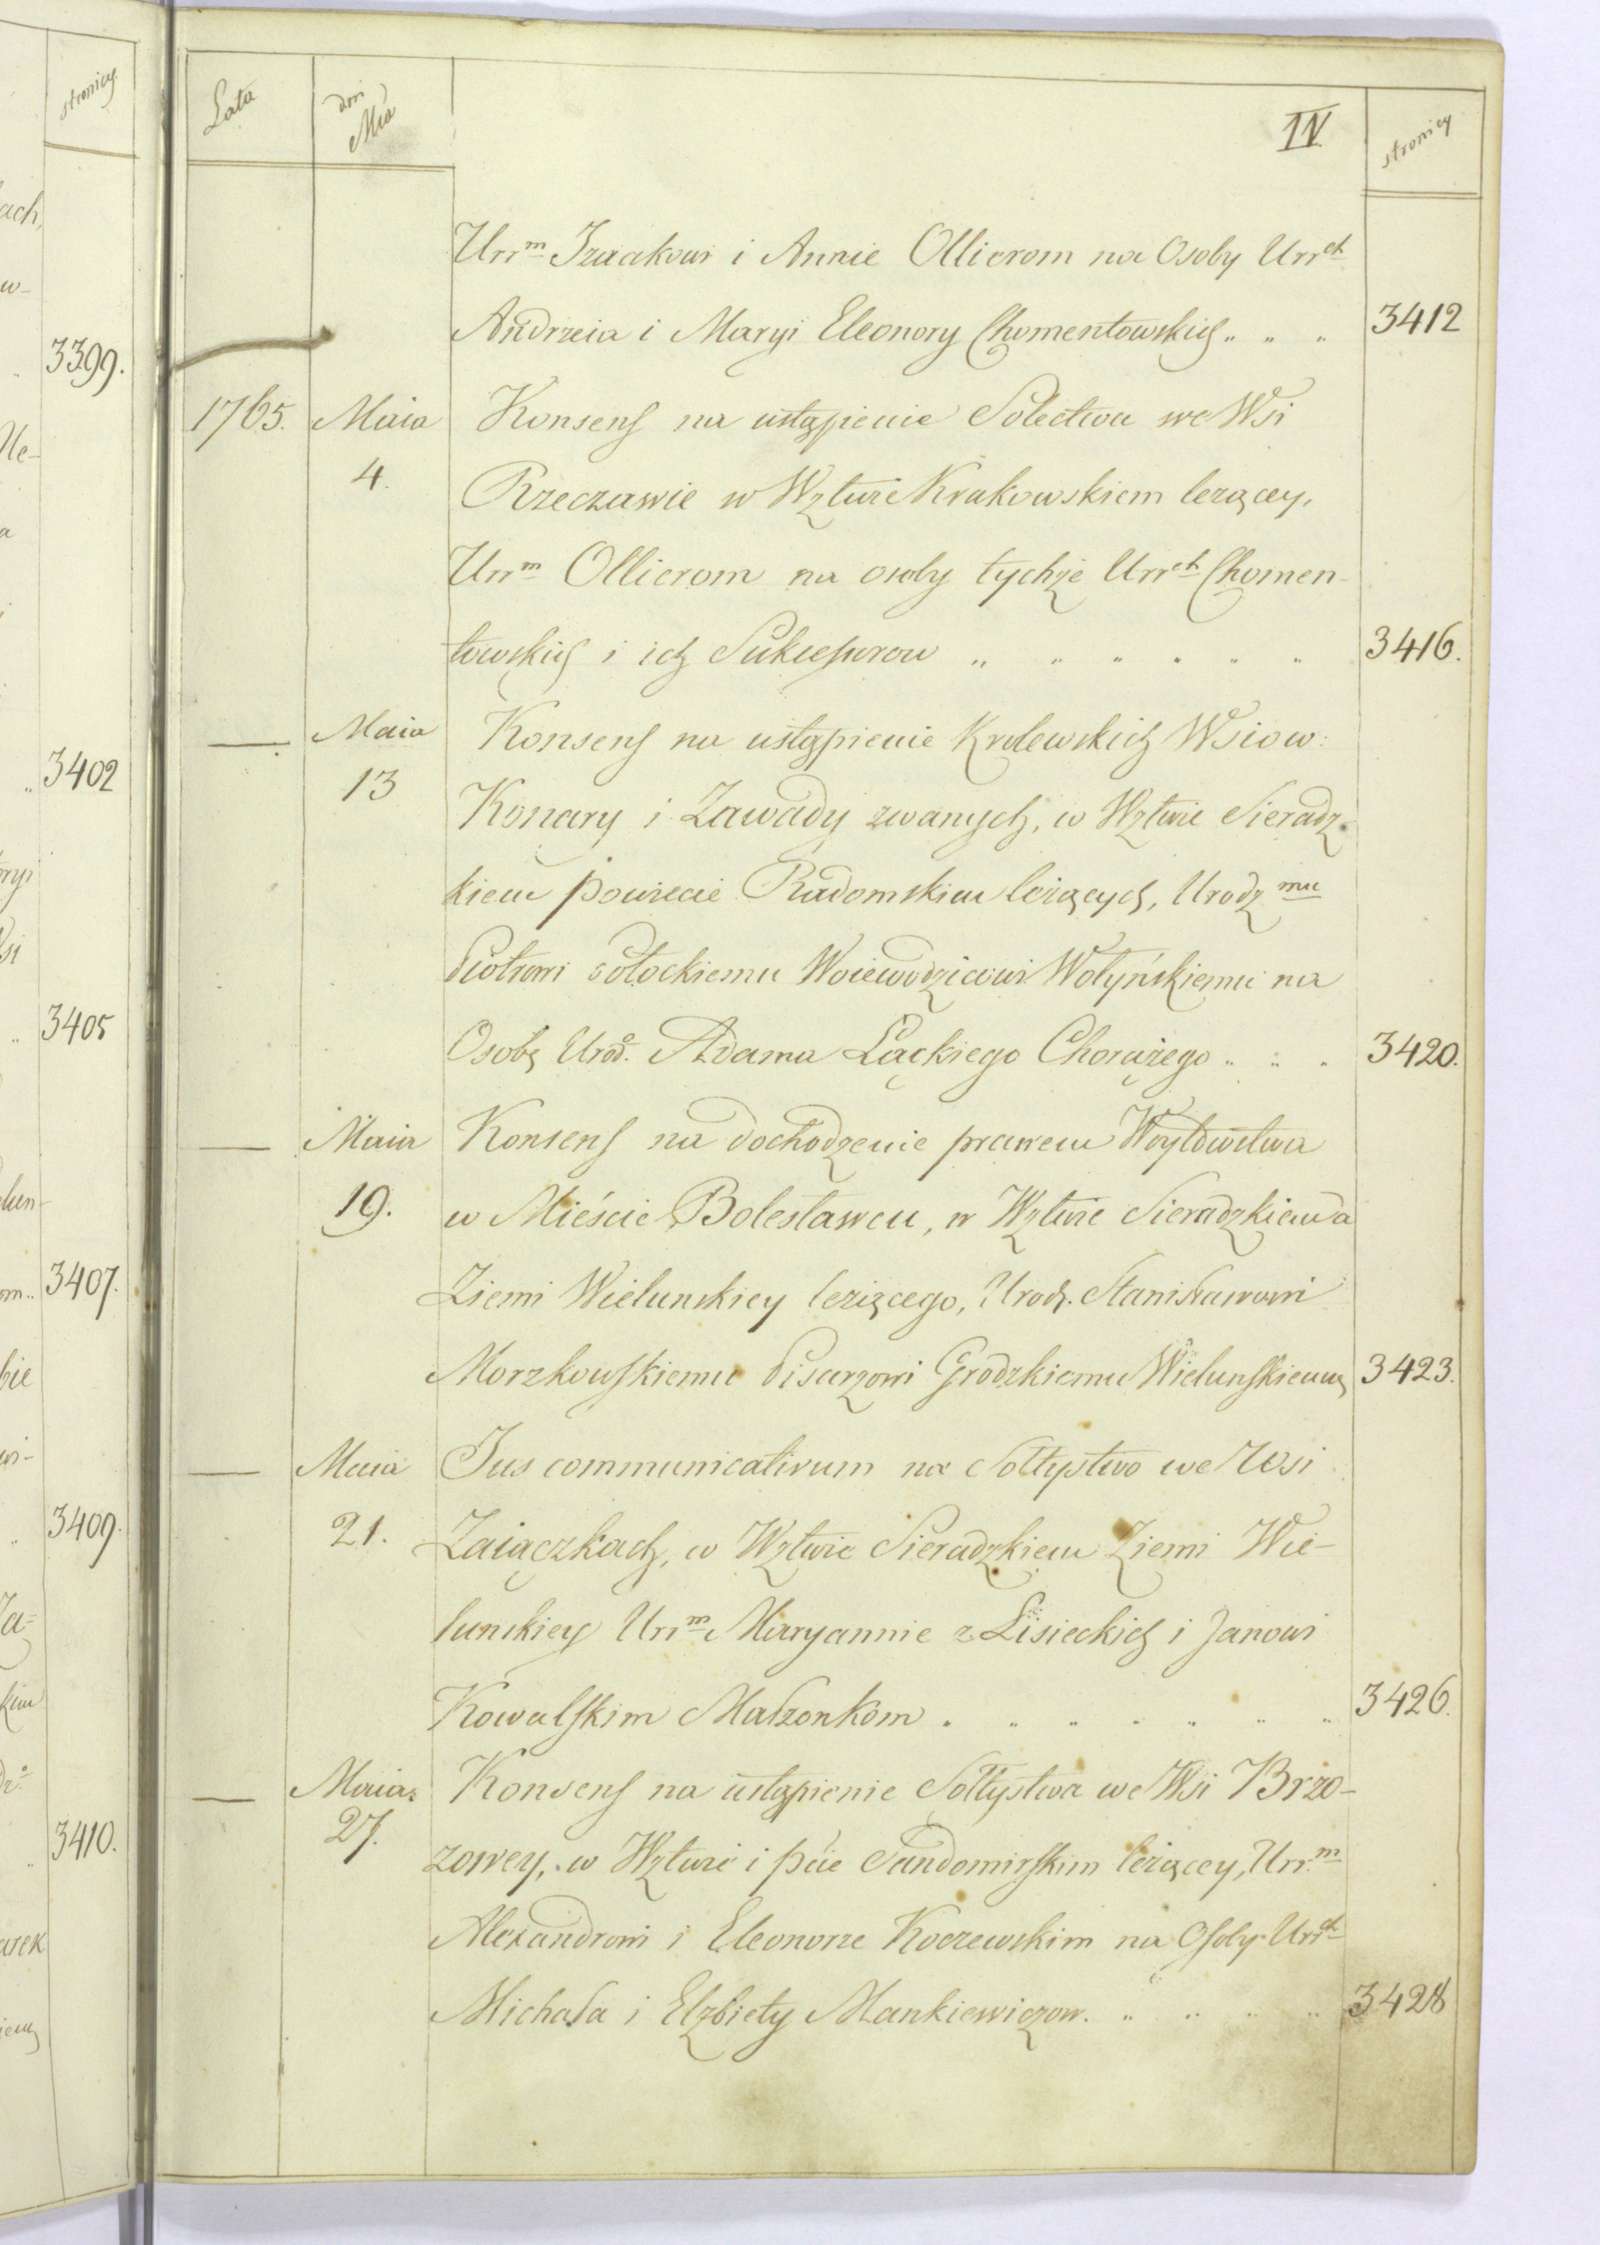 stronicy
3399.
3402
3405
3407.
3409.
3410.
Lata
dni
Mca
IV
stronicy
Urr^m Izaakowi i Annie Ollierom na Osoby Urr^ch
Andrzeia i Maryi Eleonory Chomentowskich „ „ „ 3412
1765. Maia Konsens na ustąpienie Solectwa we Wsi
4. Rzeczawie w Wztwie Krakowskiem leżącey,
Urr^m Ollierom na osoby tychże Urr^ch Chomen-
towskich i ich Sukcessorow „ „ „ „ „ „ 3416.
— Maia Konsens na ustąpienie Krolewskich Wsiow:
13 Konary i Zawady zwanych, w Wztwie Sieradz-
kiem powiecie Radomskiem leżących, Urodz^mu
Piotrowi Potockiemu Woiewodzicowi Wołyńskiemu na
Osobę Urod. Adama Łąckiego Chorążego „ „ „ 3420.
— Maia Konsens na dochodzenie prawem Woytowstwa
19. w Mieście Bolesławcu, w Wztwie Sieradzkiem a
Ziemi Wielunskiey leżącego, Urodz. Stanisławowi
Morzkowskiemu Pisarzowi Grodzkiemu Wielunskiemu 3423.
— Maia Jus communicativum na Sołtystwo we Wsi
21. Zaiączkach, w Wztwie Sieradzkiem Ziemi Wie-
lunskiey Urr^m Maryannie z Lisieckich i Janowi
Kowalskim Małzonkom „ „ „ „ „ „ „ 3426.
— Maia Konsens na ustąpienie Sołtystwa we Wsi Brzo-
27. zowey, w Wztwie i pcie Sandomirskim leżącey, Urr^m
Alexandrowi i Eleonorze Koczewskim na Osoby Urr^ch
Michała i Elzbiety Mankiewiczow. „ „ „ „ 3428